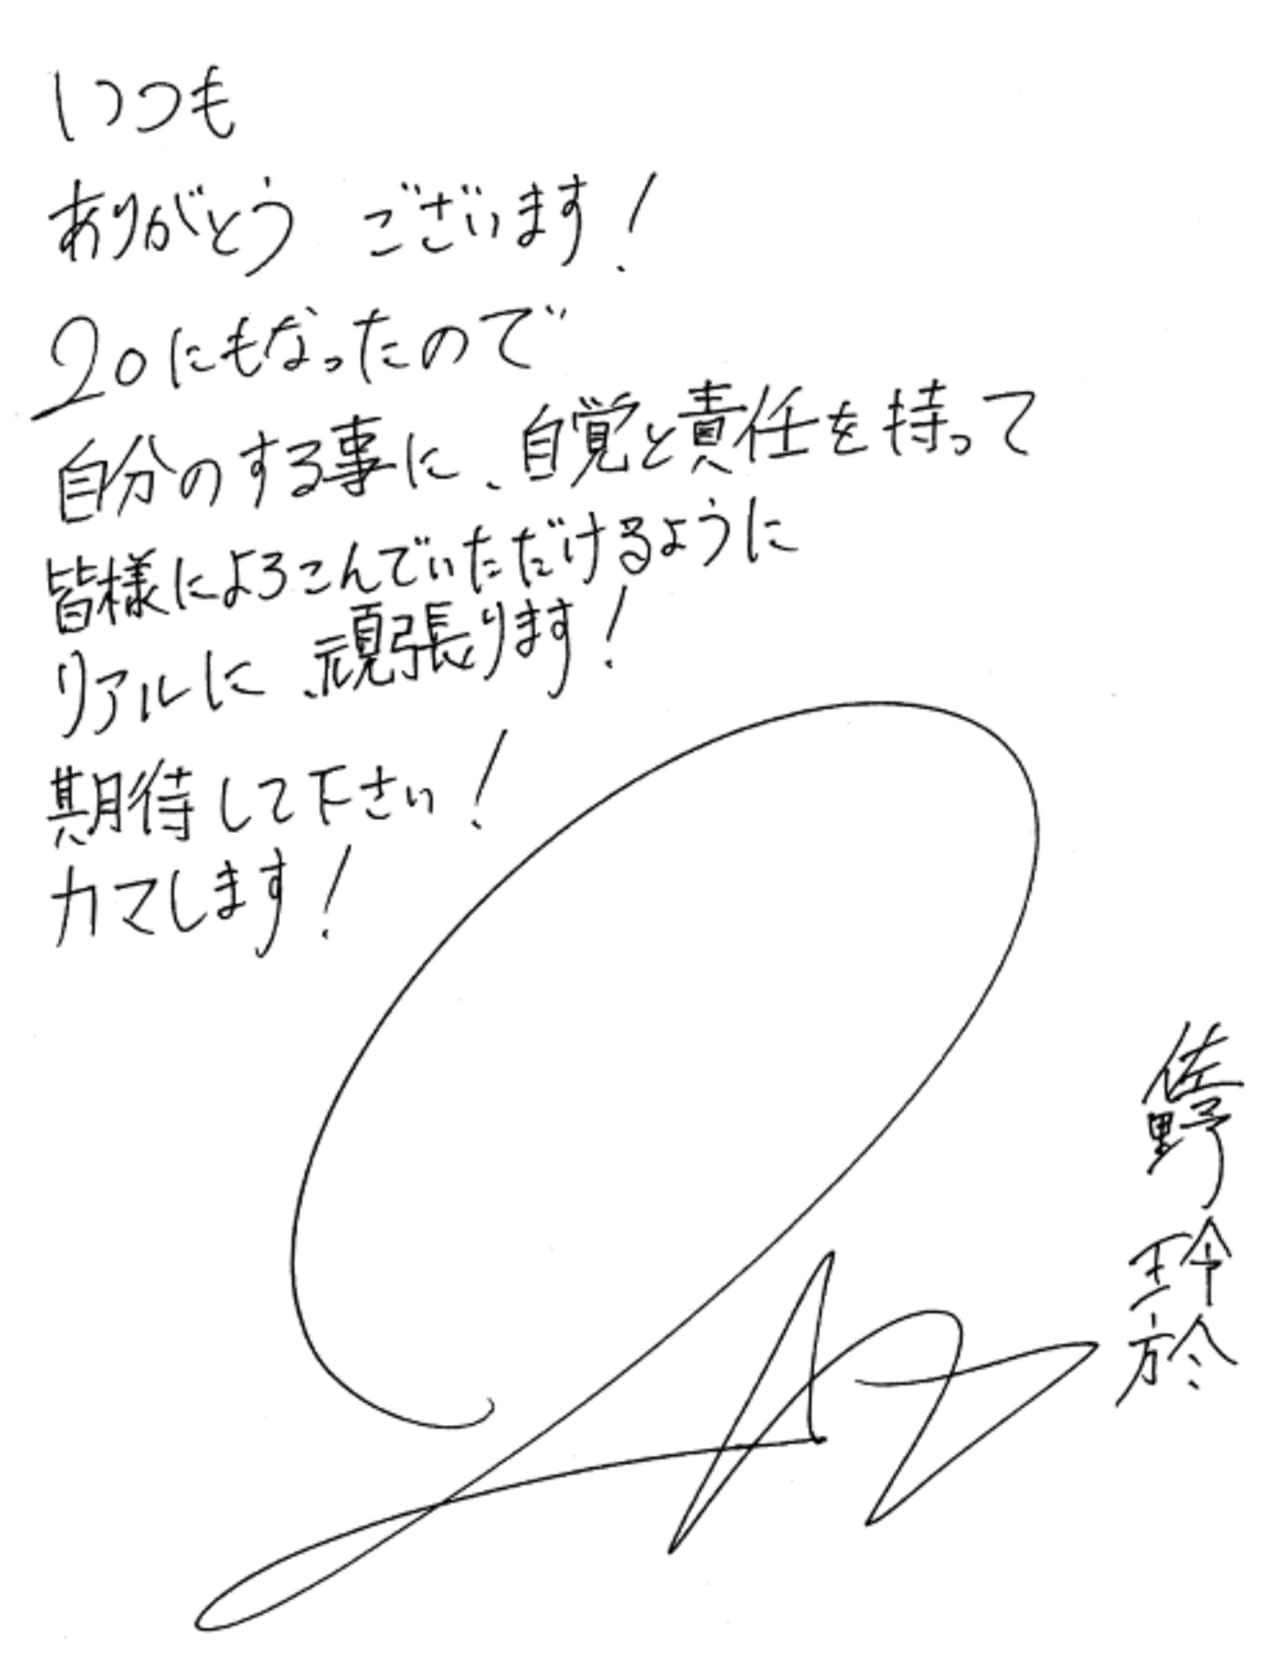 いつも
ありがとう ございます!
20にもなったので
自分のする事に、自覚と責任を持って
皆様によろこんでいただけるように
リアルに、頑張ります!
期待して下さい!
カマします!
佐野
玲於